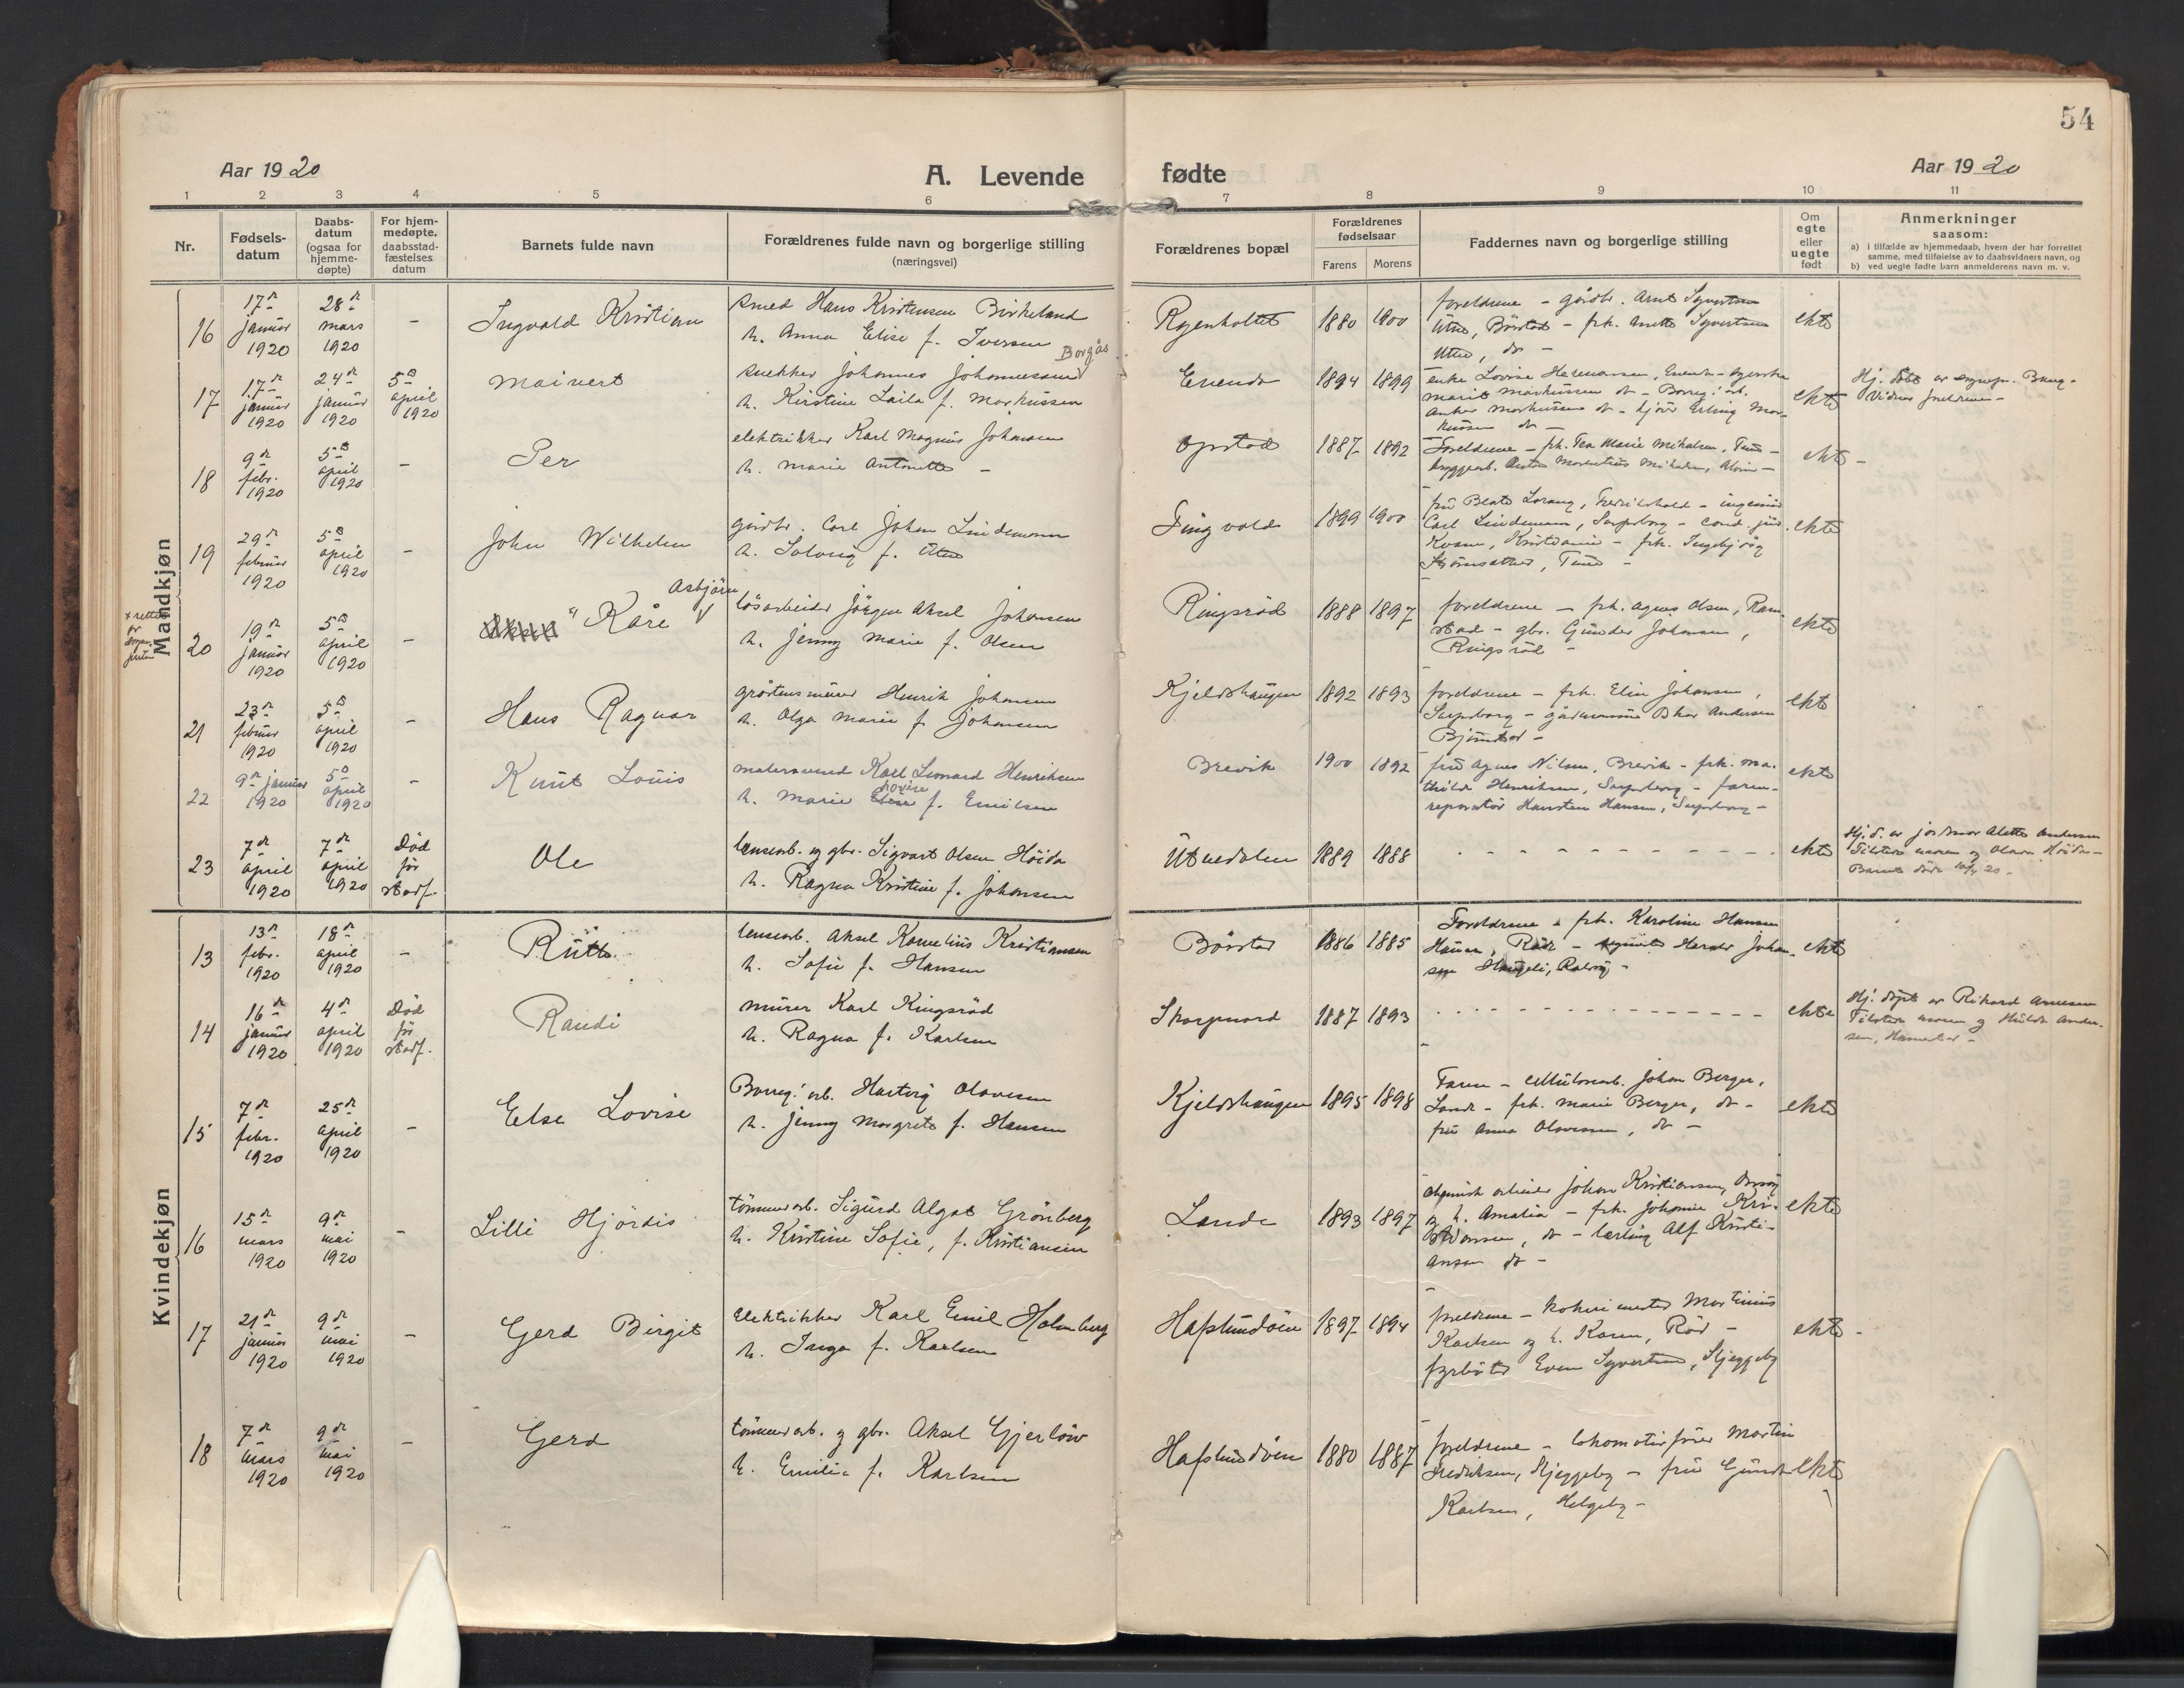 54
Aar 1920
A. Levende fødte
Aar 1920
1 2 3 4 5 6 7 8 9 10 11
Nr.
Fødsels-
datum
Daabs-
datum
(ogsaa for
hjemme-
døpte)
For hjem-
medøpte,
daabsstad-
fæstelses
datum
Barnets fulde navn
Forældrenes fulde navn og borgerlige stilling
(næringsvei)
Forældrenes bopæl
Forældrenes
fødselsaar
Farens Morens
Faddernes navn og borgerlige stilling
Om
egte
eller
uegte
født
Anmerkninger
saasom:
a) i tilfælde av hjemmedaab, hvem der har forrettet
samme, med tilføielse av to daabsvidners navn, og
b) ved uegte fødte barn anmelderens navn m. v.
Mandkjøn
16
17de januar 1920
28de mars 1920
-
Ingvald Kristian
smed Hans Kristensen Birkeland
h. Anna Elise f. Iversen
Rgenholtet
1880 1900
foreldrene - gårdbr. Arnt Syvertsen
Utne, Börstad - frk. Anette Syvertsen
Utne, do -
ekte
17
17de januar 1920
24de januar 1920
5te april 1920
Maivert
snekker Johannes Johannessen Borgås
h. Kirstine Laila f. Markussen
Enende
1894 1899
enke Lovise Hermansen, Enende -
Marit Markussen do - Borreg. arb.
Anker Markussen do - Erling Mar-
kussen do -
ekte
Hj. döbt av sogneprest Bang -
Vidner foreldrene -
18
9de febr. 1920
5te april 1920
-
Per
elektriker Karl Magnus Johansen
h. Marie Antonette -
Opstad
1887 1892
Foreldrene - frk. Tea Marie Mikalsen, Tune -
bryggearb. Mikalsen,
ekte -
19
29de februar 1920
5te april 1920
-
John Wilhelm
gårdbr. Carl Johan Lindemann
h. Solveig f. Utne
Tingvold
1899 1900
frü Beate Lorang, Fredrikshald - ingeniør
Carl Lindemann, Sarpsborg - cand. jür.
Kristiania - frk. Ingebjörg
Tune -
ekte
x rettet
av
sogne-
presten
20
19de januar 1920
5te april 1920
-
Kåre Asbjörn
lösarbeider Jörgen Aksel Johansen
h. Jenny Marie f. Olsen
Ringsröd
1888 1897
foreldrene - frk. Agnes Olsen, Ram-
stad - gbr. Gunder Johansen,
Ringsröd -
ekte
21
23de februar 1920
5te april 1920
-
Hans Ragnar
gråstensmurer Henrik Johansen
h. Olga Marie f. Johansen
Kjeldshaugen
1892 1893
foreldrene - frk. Elin Johansen,
Sarpsborg - Oskar Andersen
Bjørnstad -
ekte
22
9de januar 1920
5te april 1920
-
Knut Louis
malersvend Karl Leonard Henriksen
h. Marie Lovise f. Emilsen
Brevik
1900 1892
frü Agnes Nilsen, Brevik - frk. Ma-
thilde Henriksen, Sarpsborg - faren -
reparatör Hansten Hansen, Sarpsborg -
ekte
23
7de april 1920
7de april 1920
Död för stadf.
Ole
lensearb. og gbr. Sigvart Olsen Höida
h. Ragna Kristine f. Johansen
Utnedalen
1889 1888
- - - - - - - - - - - -
ekte
Hj. d. av jordmor Alette Andersen
Tilstede moren og Olava Höida -
Barnet döde 10/4 20.
Kvindekjøn
13
13de febr. 1920
18de april 1920
-
Rüth
lensearb. Aksel Kornelius Kristiansen
h. Sofie f. Hansen
Börstad
1886 1885
Foreldrene - frk. Karoline Hansen
Röd - Harald Johan-
sen
ekte
14
16de januar 1920
4de april 1920
Död för stadf.
Randi
murer Karl Ringsröd
h. Ragna f. Karlsen
Skarpnord
1887 1893
- - - - - - - - - - - -
ekte
Hj. döpt av Rikard Arnesen
Tilstede moren og Hulda Ander-
sen,
15
7de febr. 1920
25de april 1920
-
Else Lovise
Borreg. arb. Hartvig Olavesen
h. Jenny Margrete f. Hansen
Kjeldshaugen
1895 1898
Faren - cellulosearb. Johan Berger,
Lande - frk. Marie Berger, do -
frü Anna Olavesen, do -
ekte
16
15de mars 1920
9de mai 1920
-
Lilli Hjördis
tömmerarb. Sigurd Algot Grönberg
h. Kristine Sofie, f. Kristiansen
Lande
1893 1897
arbeider Johan Kristiansen,
og h. Amalia - frk. Johanne Kri-
stiansen, do - lærling Alf Kristi-
ansen do -
ekte
17
21de januar 1920
9de mai 1920
-
Gerd Birgit
elektrikker Karl Emil Holmberg
h. Inga f. Karlsen
Hafslundöen
1897 1894
foreldrene - kokerimester Martinius
Karlsen og h. Karen, Röd -
fyrböter Even Syvertsen, Skjeggeby
ekte -
18
7de mars 1920
9de mai 1920
-
Gerd
tömmerarb. og gbr. Aksel Gjerlöw
h. Emilie f. Karlsen
Hafslundöen
1880 1887
foreldrene - lokomotivförer Martin
Fredriksen, Skjeggeby - frü Gunda
Karlsen, Helgeby -
ekte